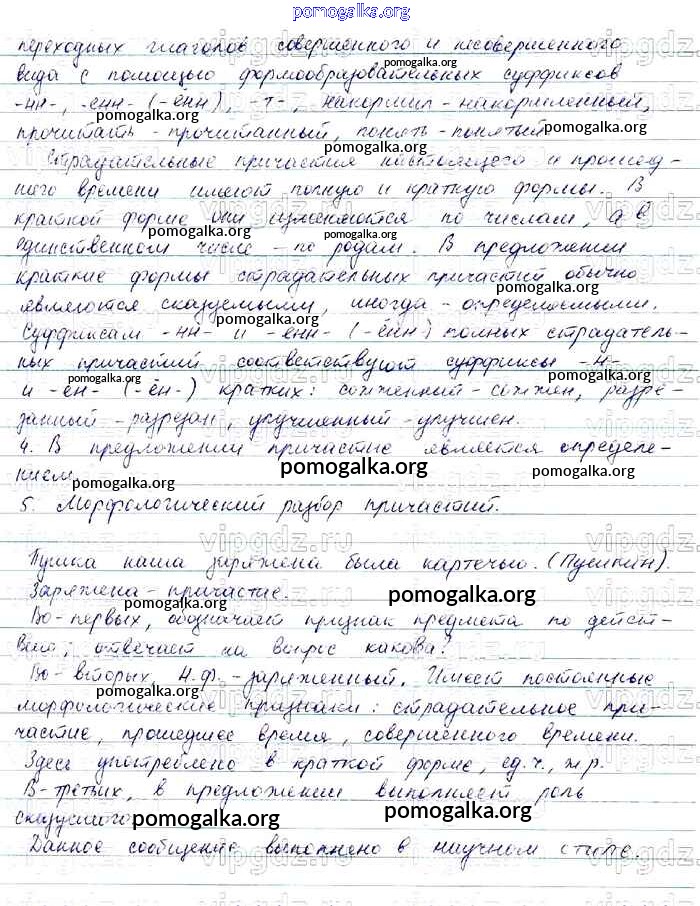 pomogalka.org
переходных глаголов совершенного и несовершенного
вида с помощью формообразовательных суффиксов
-нн-, -енн- (-ённ), -т-, накормил - накормленный,
прочитать - прочитанный, понять - понятый
Страдательные причастия настоящего и прошед-
ного времени имеют полную и краткую формы. В
краткой форме они изменяются по числам, а в
единственном числе - по родам. В предложении
краткие формы страдательных причастий обычно
являются сказуемыми, иногда - определяемыми.
Суффиксам -нн- и -енн- (-ённ) полных страдатель-
ных причастий соответствуют суффиксы -н-
и -ен- (-ён-) кратких: сожженный - сожжен, разре-
занный - разрезан, улучшенный - улучшен.
4. В предложении причастие является определе-
нием
5. Морфологический разбор причастий.
Пушка наша заряжена была картечью. (Пушкин).
Заряжена - причастие.
Во-первых, обозначает признак предмета по дейст-
вию; отвечает на вопрос какова?
Во-вторых Н.ф. - заряженный. Имеет постоянные
морфологические признаки: страдательное при-
частие, прошедшее время, совершенного времени.
Здесь употреблено в краткой форме, ед.ч., ж.р.
В-третьих, в предложении выполняет роль
сказуемого
Данное сообщение выполнено в научном стиле.